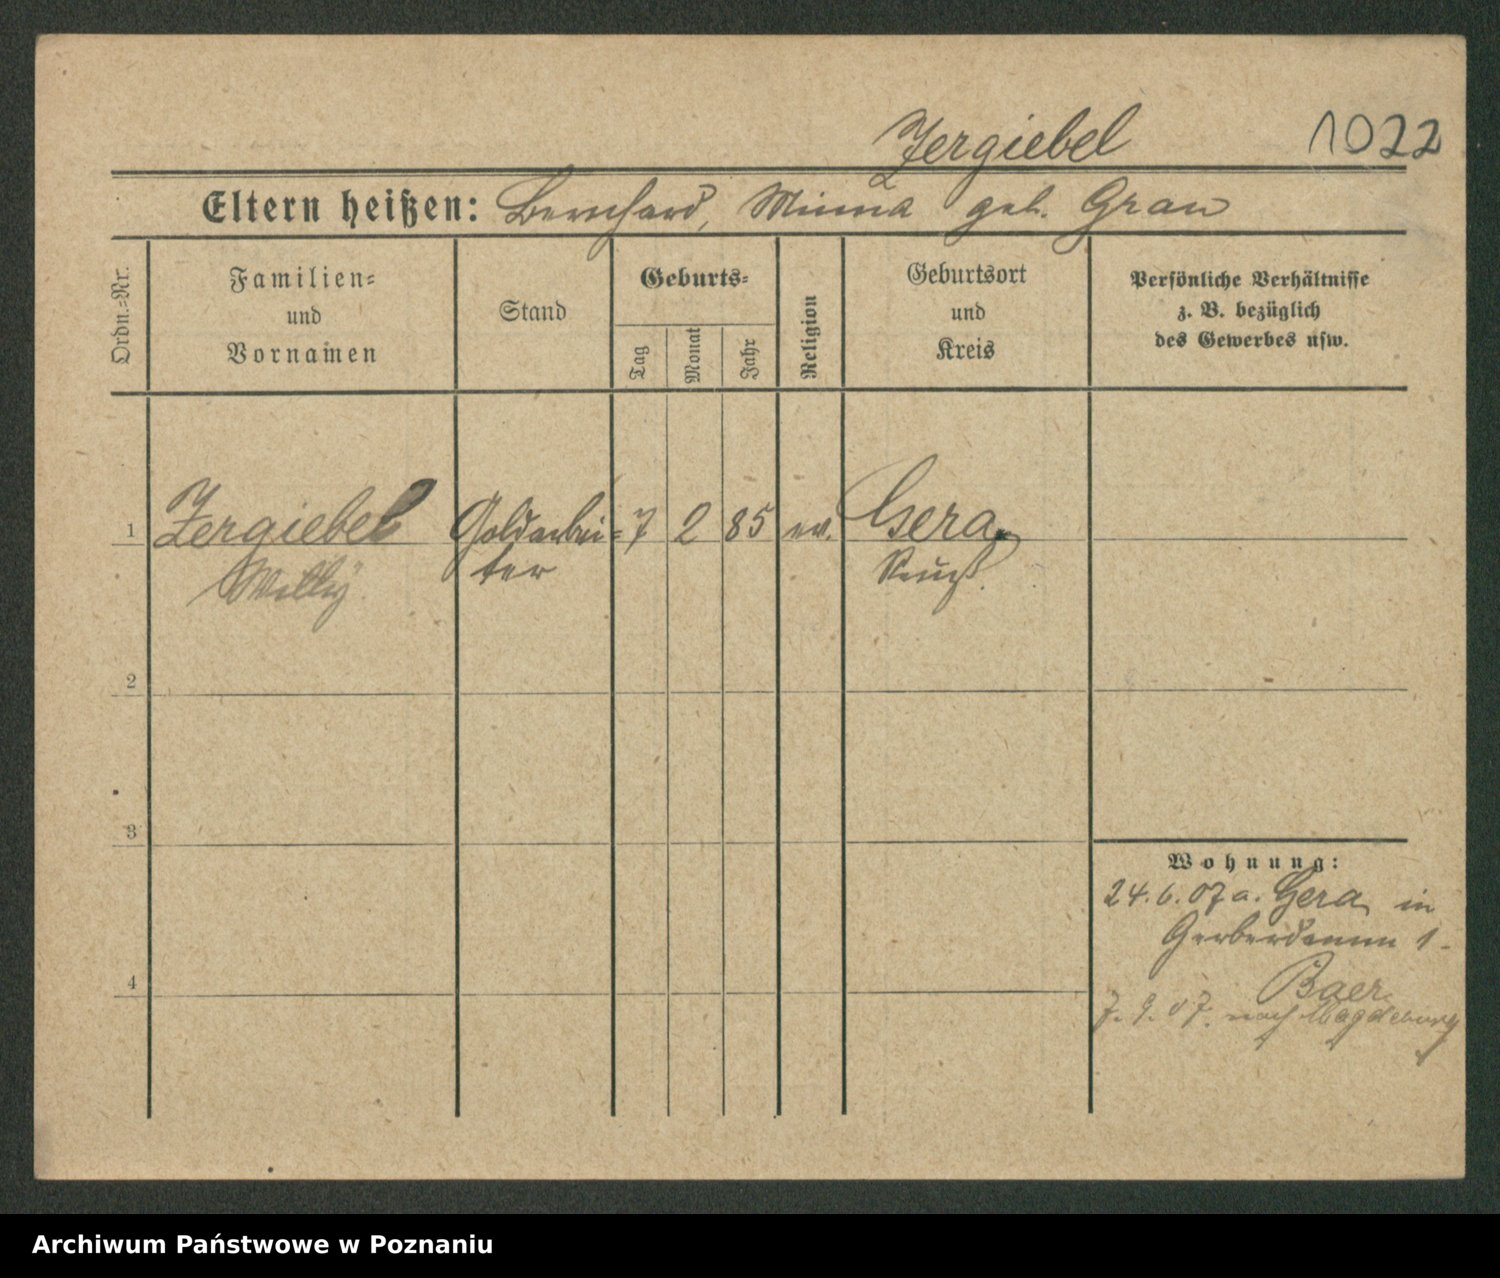 Zergiebel 1022
Eltern heißen: Bernhard, Minna geb. Grau
Ordn.=Nr.
Familien=
und
Vornamen
Stand
Geburts=
Tag
Monat
Jahr
Religion
Geburtsort
und
Kreis
Persönliche Verhältnisse
z. B. bezüglich
des Gewerbes usw.
1 Zergiebel Goldarbei= 7 2 85 ev. Gera
Willy ter Reuß.
2
3
Wohnung:
24.6.07 a. Gera in
Gerberdamm 1.
Baer
4
7.9.07. nach Magdeburg
Archiwum Państwowe w Poznaniu